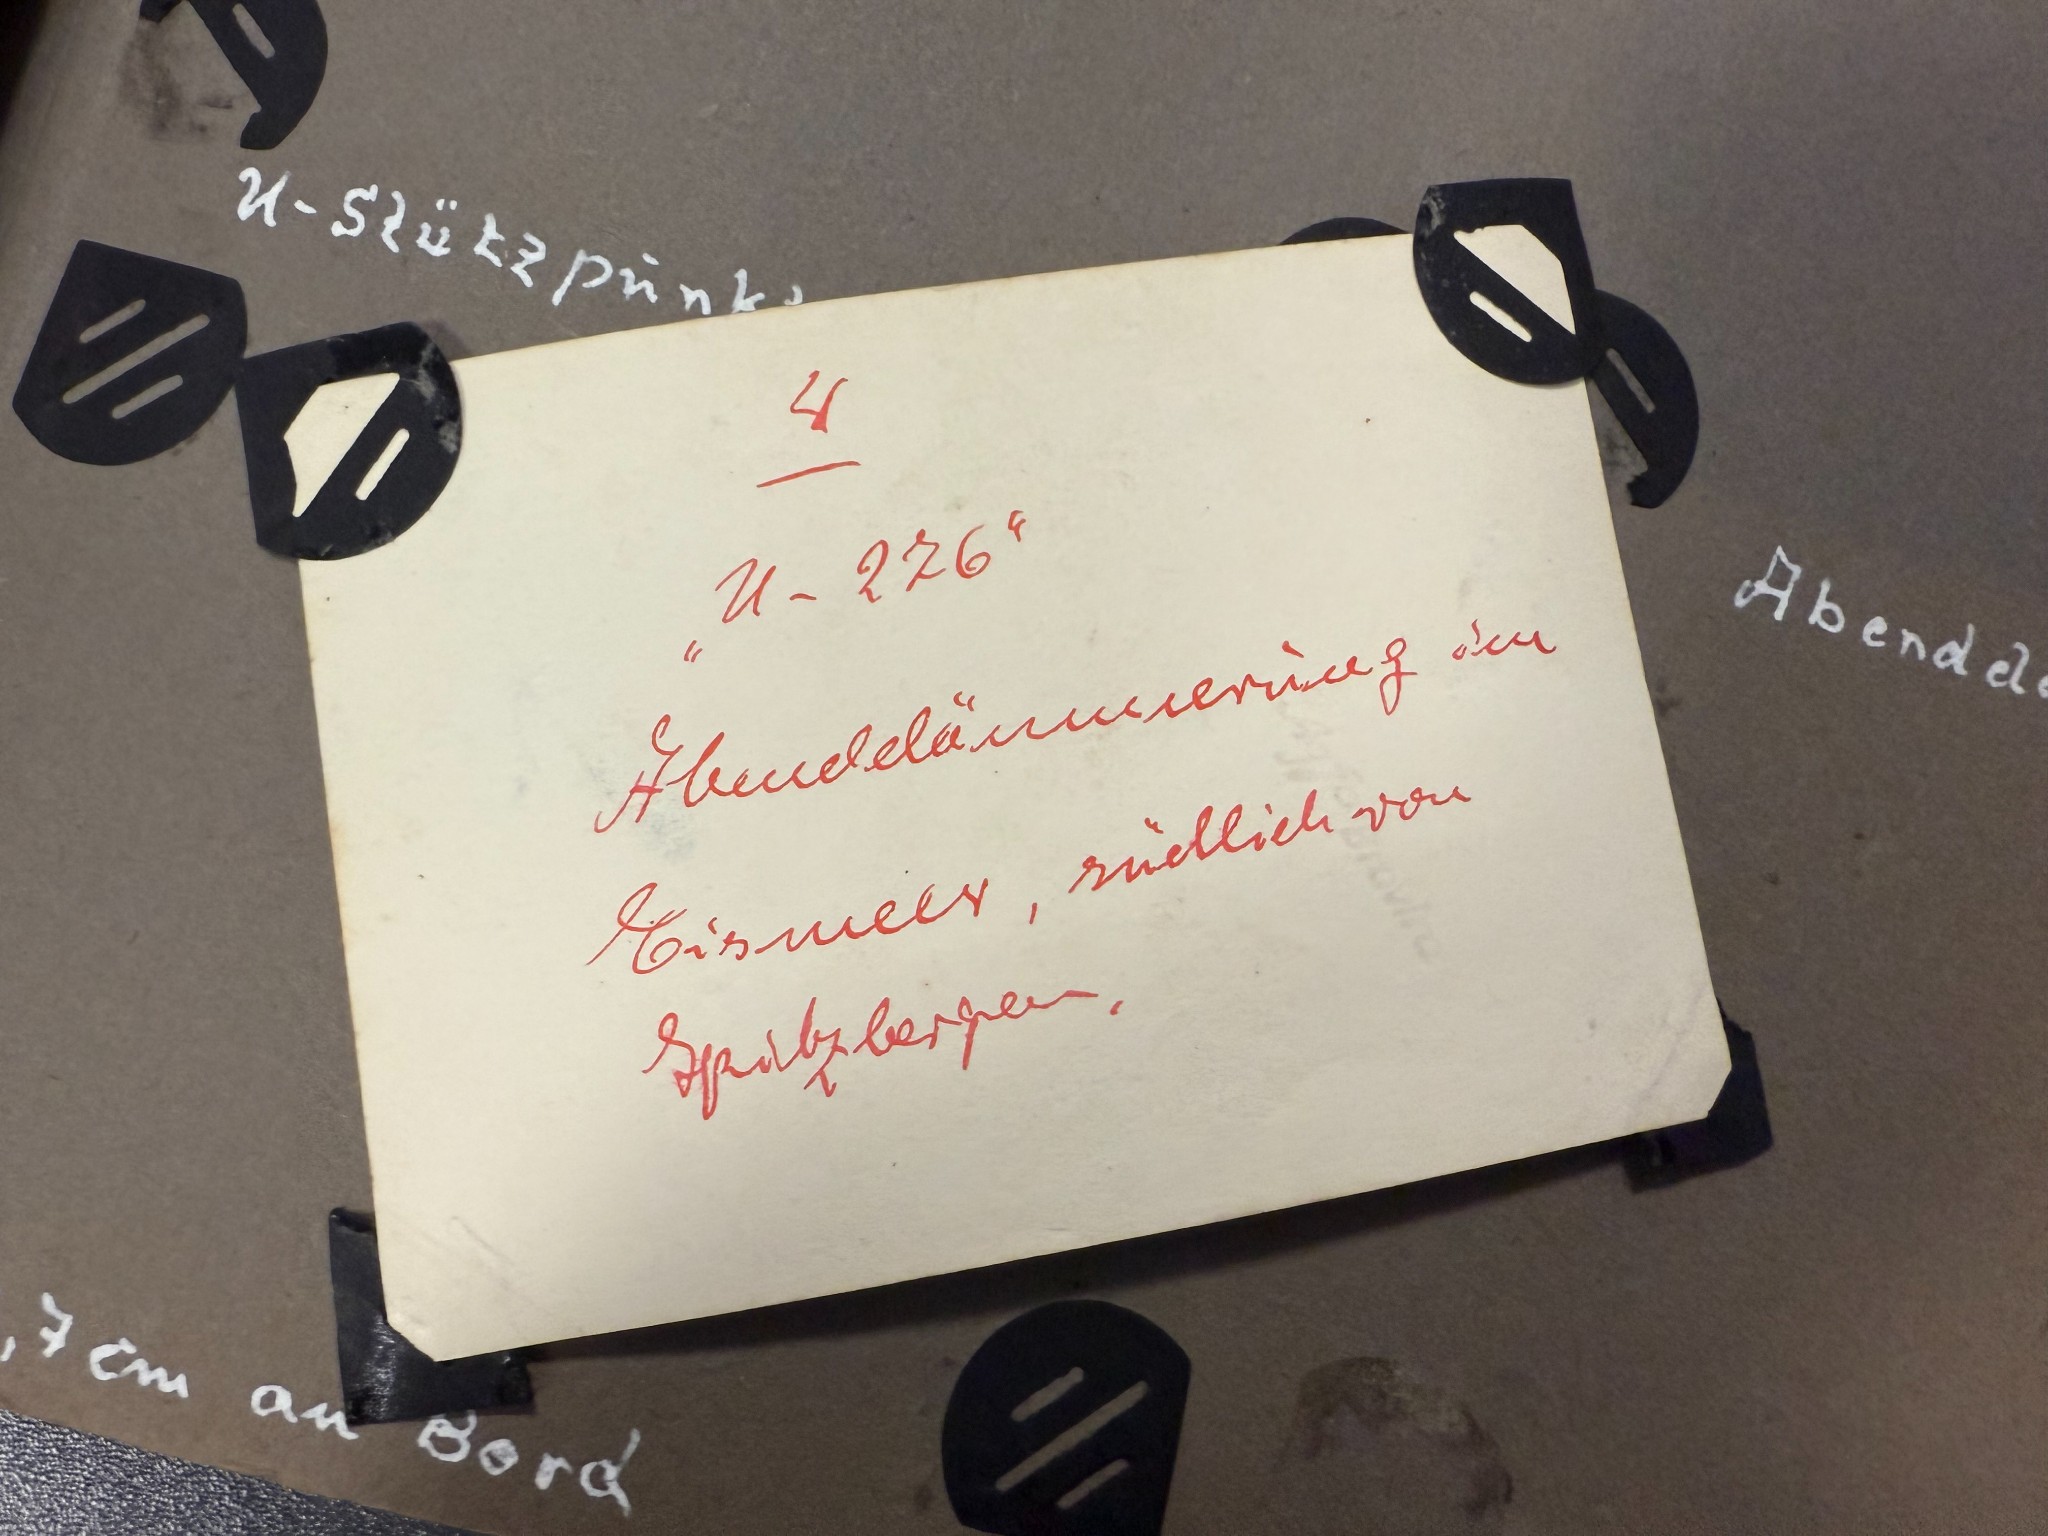 U-Stützpunkt
4
„U-276“
Abenddämmerung im
Eismeer, südlich von
Spitzbergen.
Abendd
,7 cm an Bord